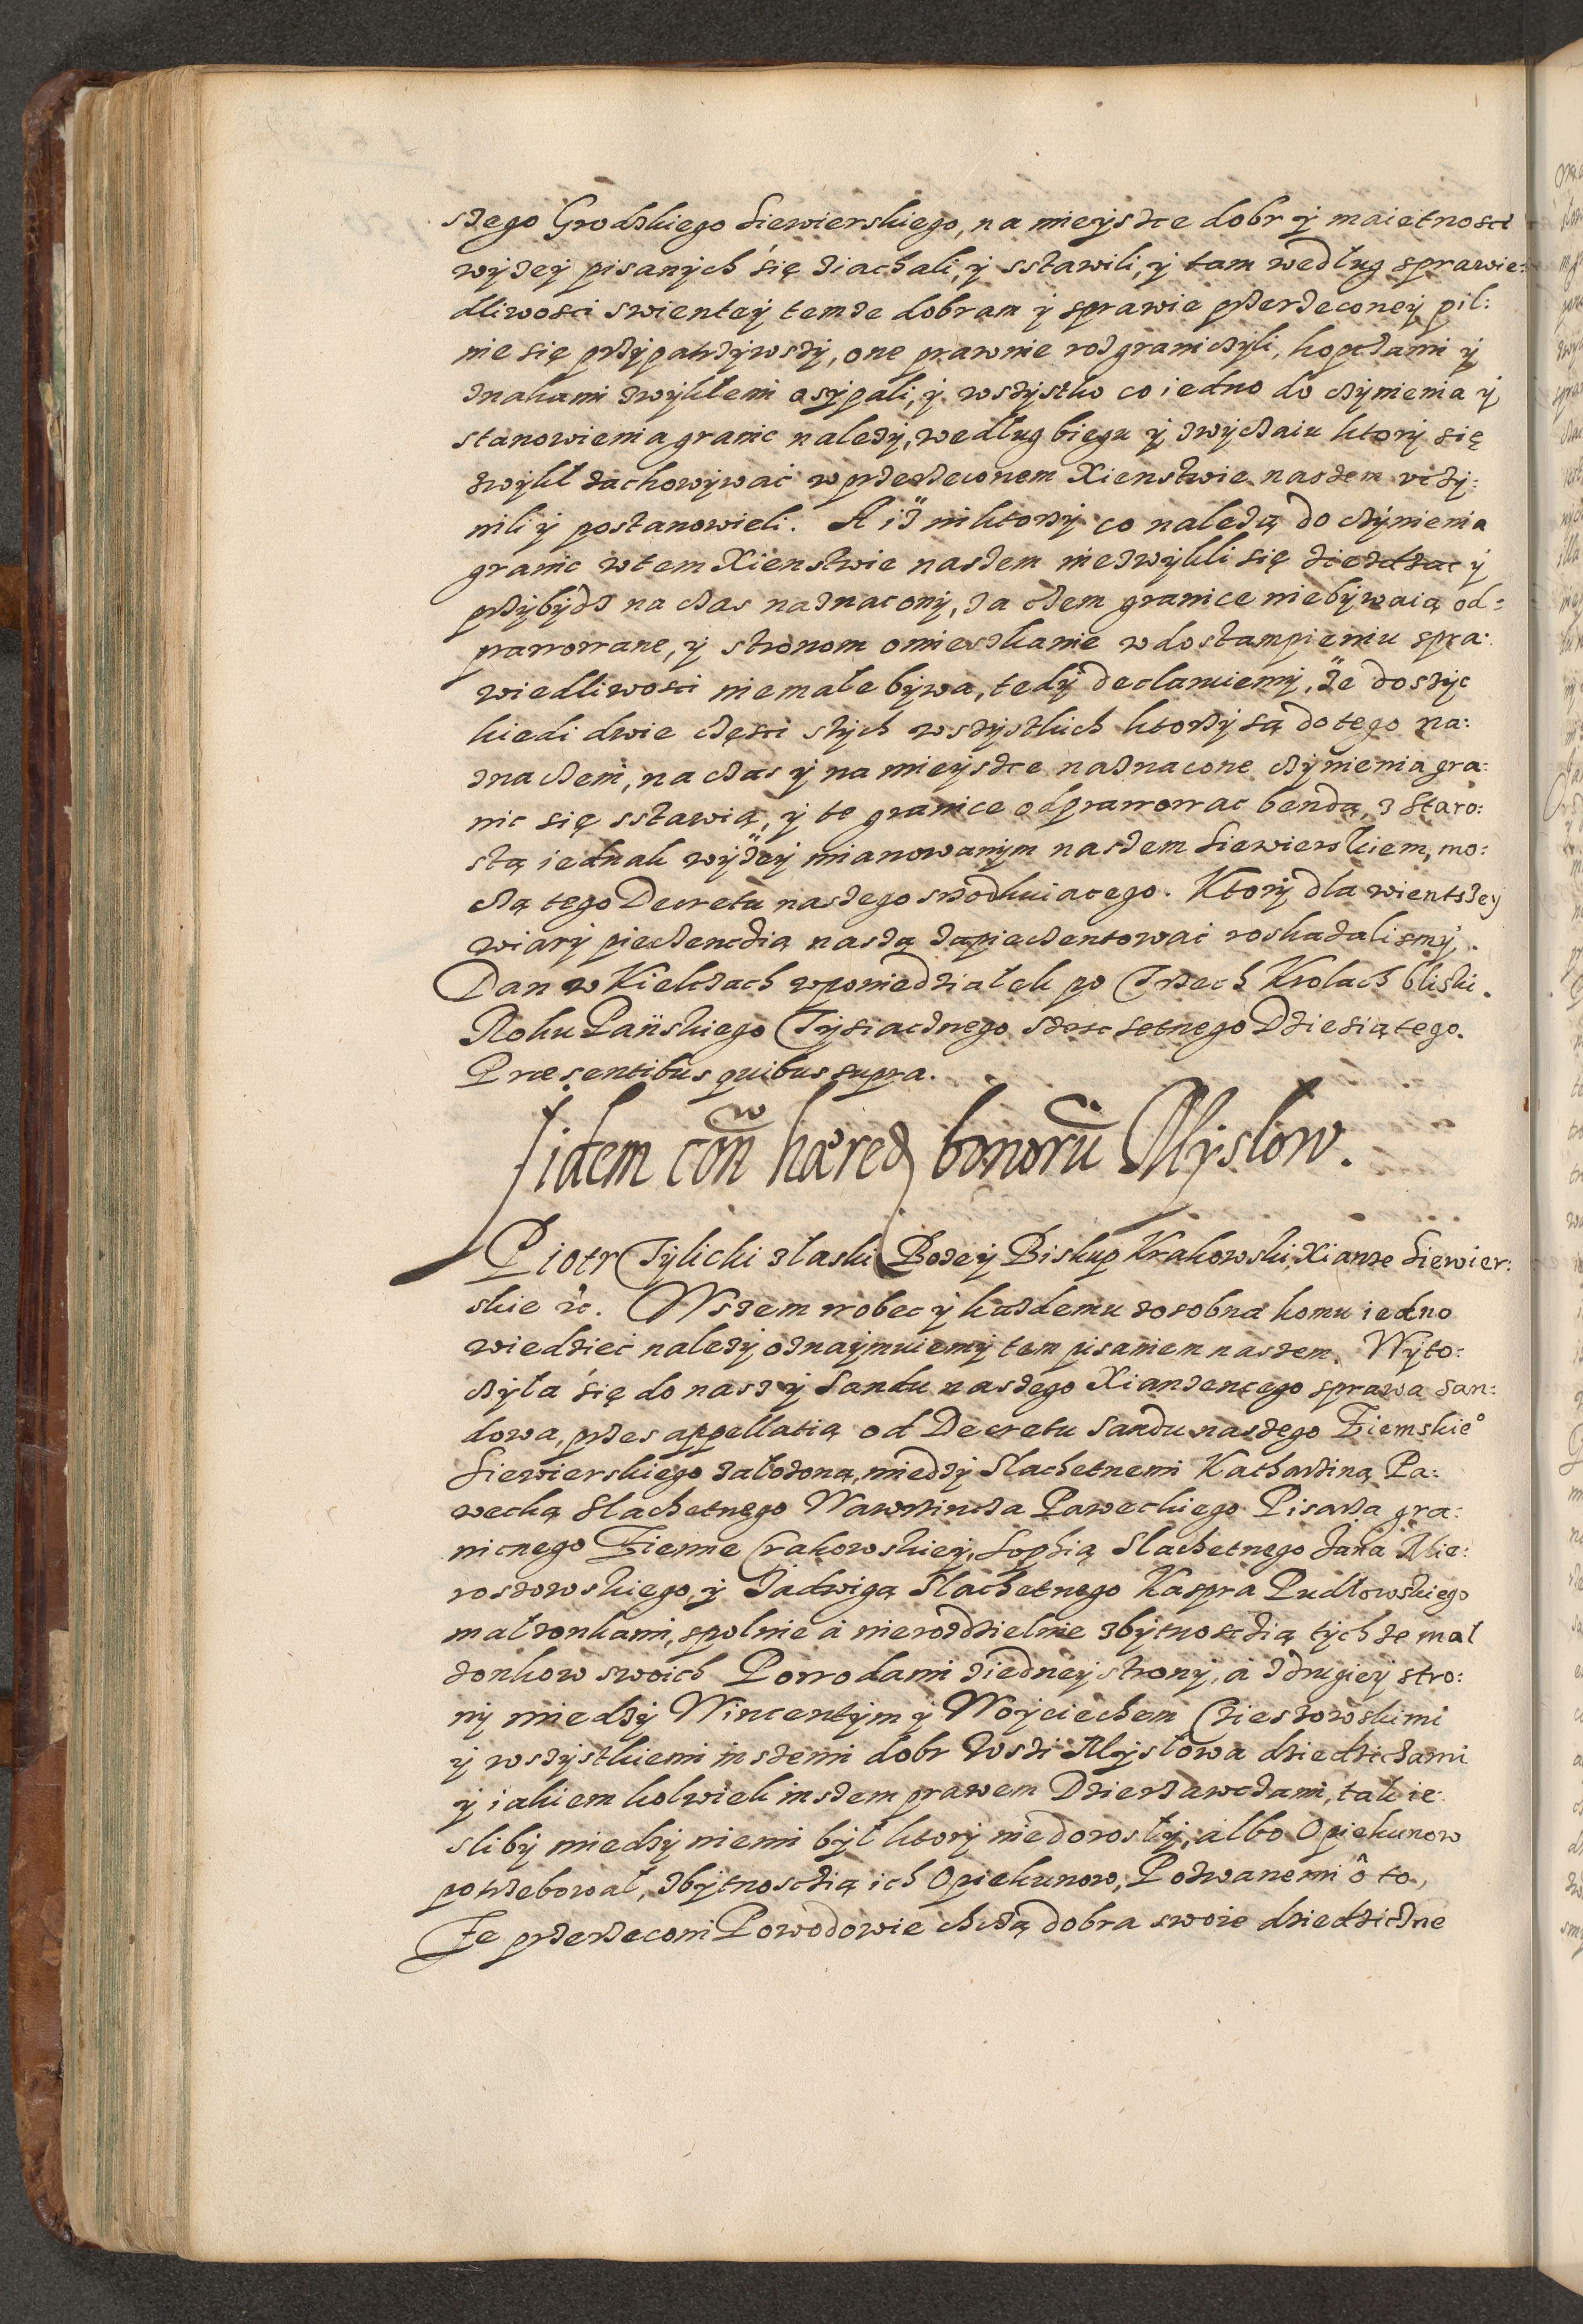 szego Grodzkiego Siewierskiego, na mieysźce dobr ÿ maiętnosci
wyzeÿ pisanych się ziachali, ÿ sstawili, ÿ tam według sprawie:
dliwosci swienteÿ temze dobram ÿ sprawie przerzeconeÿ pil:
nie się przÿpatrzÿwszÿ, one prawnie rozgranicżÿli, kopczami ÿ
znakami zwÿkłemi osÿpali, ÿ wszÿstko co iedno do czÿnienia ÿ
stanowienia granic nalezÿ, według biegu ÿ zwÿczaiu ktorÿ się
zwÿkł zachowÿwać w przerzeconem Xienstwie naszem vczÿ:
nili ÿ postanowieli. A iż niktorzÿ co nalezą do czÿnienia
granic w tem Xienstwie naszem niezwÿkli się ziezdzac ÿ
przÿbÿdz na czas naznaconÿ, za czem granice niebÿwaią od:
prawowane, ÿ stronom omieszkanie w dostampieniu spra:
wiedliwosci niemałe bÿwa, tedÿ declaruiemÿ, że doszÿc
kiedi dwie częsci stÿch wszÿstkich ktorzÿ są do tego na:
znaczeni, na czas ÿ na mieysźce naznacone czÿnienia gra:
nic się sstawią, ÿ te granice odprawowac bendą, z Staro:
stą iednak wÿżeÿ mianowanÿm naszem Siewierskiem, mo:
czą tego Decretu naszego srzodkuiacego. Ktorÿ dla wientszeÿ
wiarÿ piecżenczią naszą zapieczentowac roskazalismÿ.
Dan w Kielczach w poniedziałek po Trzech Krolach bliski.
Roku Pańskiego Tÿsiacznego szesc setnego Dziesiątego.
Præsentibus quibus supra.
Iidem con̄ hæred bonorū Mÿslow.
Piotr Tÿlicki z łaski Bozeÿ Biskup Krakowski, Xianze Siewier:
skie ꝛc. Wszem wobec ÿ kazdemu zosobna komu iedno
wiedziec nalezÿ oznaÿmuiemÿ tem pisaniem naszem. Wÿto:
czÿła się do nas z ÿ Sandu naszego Xianzencego sprawa san:
dowa, przes appellatią od Decretu Sandu naszego Ziemskie°
Siewierskiego załozona, miedzÿ Slachetnemi Katharziną Pa:
wecką Slachetnego Wawrzincza Paweckiego Pisarza gra:
nicnego Ziemie Crakowskieÿ, Sophią Slachetnego Jana Mie:
roszowskiego, ÿ Jadwigą Slachetnego Kaspra Pudłowskiego
małzonkami, spolnie à nierozdzielnie z bÿtnosczią tÿch ze mał
zonkow swoich Powodami ziedneÿ stronÿ, a z drugieÿ stro:
nÿ miedzÿ Wincentÿm ÿ Woyciechem Cieszowskimi
ÿ wszÿstkiemi inszemi dobr Wszi Mÿsłowa dziedziczami
ÿ iakiem kolwiek inszem prawem Dzierzawczami, tak ie:
sliby miedzÿ niemi bÿł ktorÿ niedorosłÿ, albo Opiekunow
potrzebował, z bÿtnosczią ich Opiekunow, Pozwanemi ô to,
Ze przerzeconi Powodowie chczą dobra swoie dziedziczne